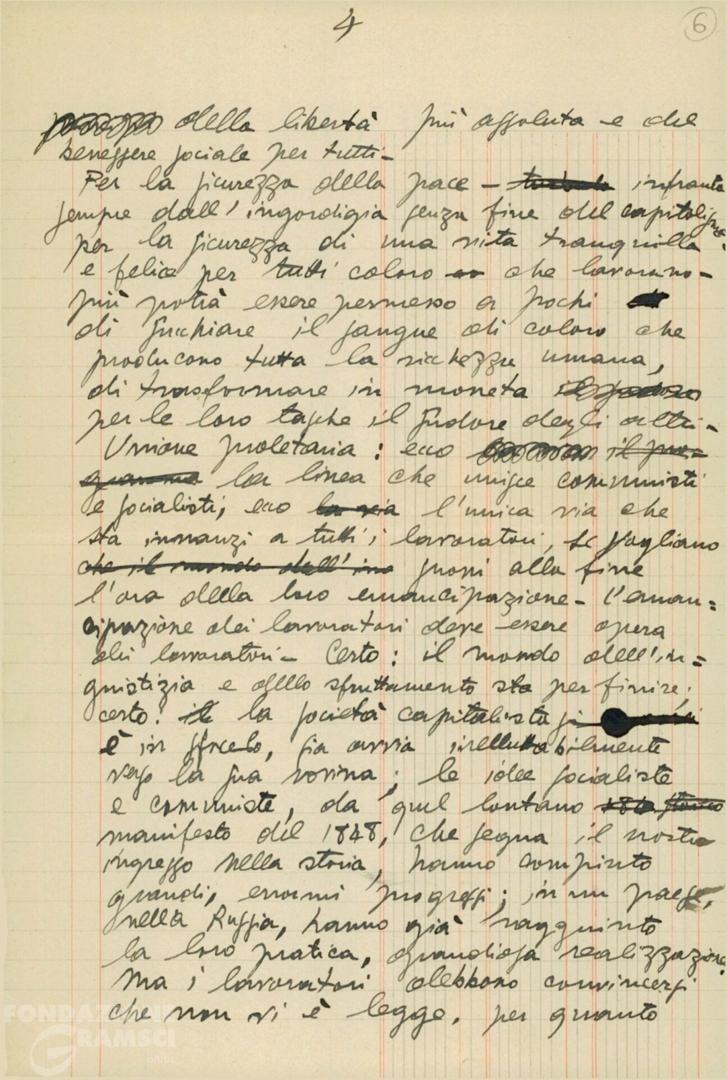 4
6
della libertà più assoluta e del
benessere sociale per tutti –
Per la sicurezza della pace – infranta
sempre dall'ingordigia senza fine del capitalismo;
per la sicurezza di una vita tranquilla
e felice per tutti coloro che lavorano –
più potrà essere permesso a pochi
di succhiare il sangue di coloro che
producono tutta la ricchezza umana,
di trasformare in moneta
per le loro tasche il sudore degli altri –
Unione proletaria: ecco il pro=
gramma la linea che unisce comunisti
e socialisti, ecco la via l'unica via che
sta innanzi a tutti i lavoratori, se vogliano
che il mondo dell'in suoni alla fine
l'ora della loro emancipazione – L'eman=
cipazione dei lavoratori deve essere opera
dei lavoratori – Certo: il mondo dell'in=
giustizia e dello sfruttamento sta per finire;
certo: il la società capitalista si
è in sfacelo, sia avvia ineluttabilmente
verso la sua rovina; le idee socialiste
e comuniste, da quel lontano
manifesto del 1848, che segna il nostro
ingresso nella storia, hanno compiuto
grandi, enormi progressi; in un paese,
nella Russia, hanno già raggiunto
la loro pratica, grandiosa realizzazione.
Ma i lavoratori debbono convincersi
che non vi è legge, per quanto
FONDAZIONE
GRAMSCI